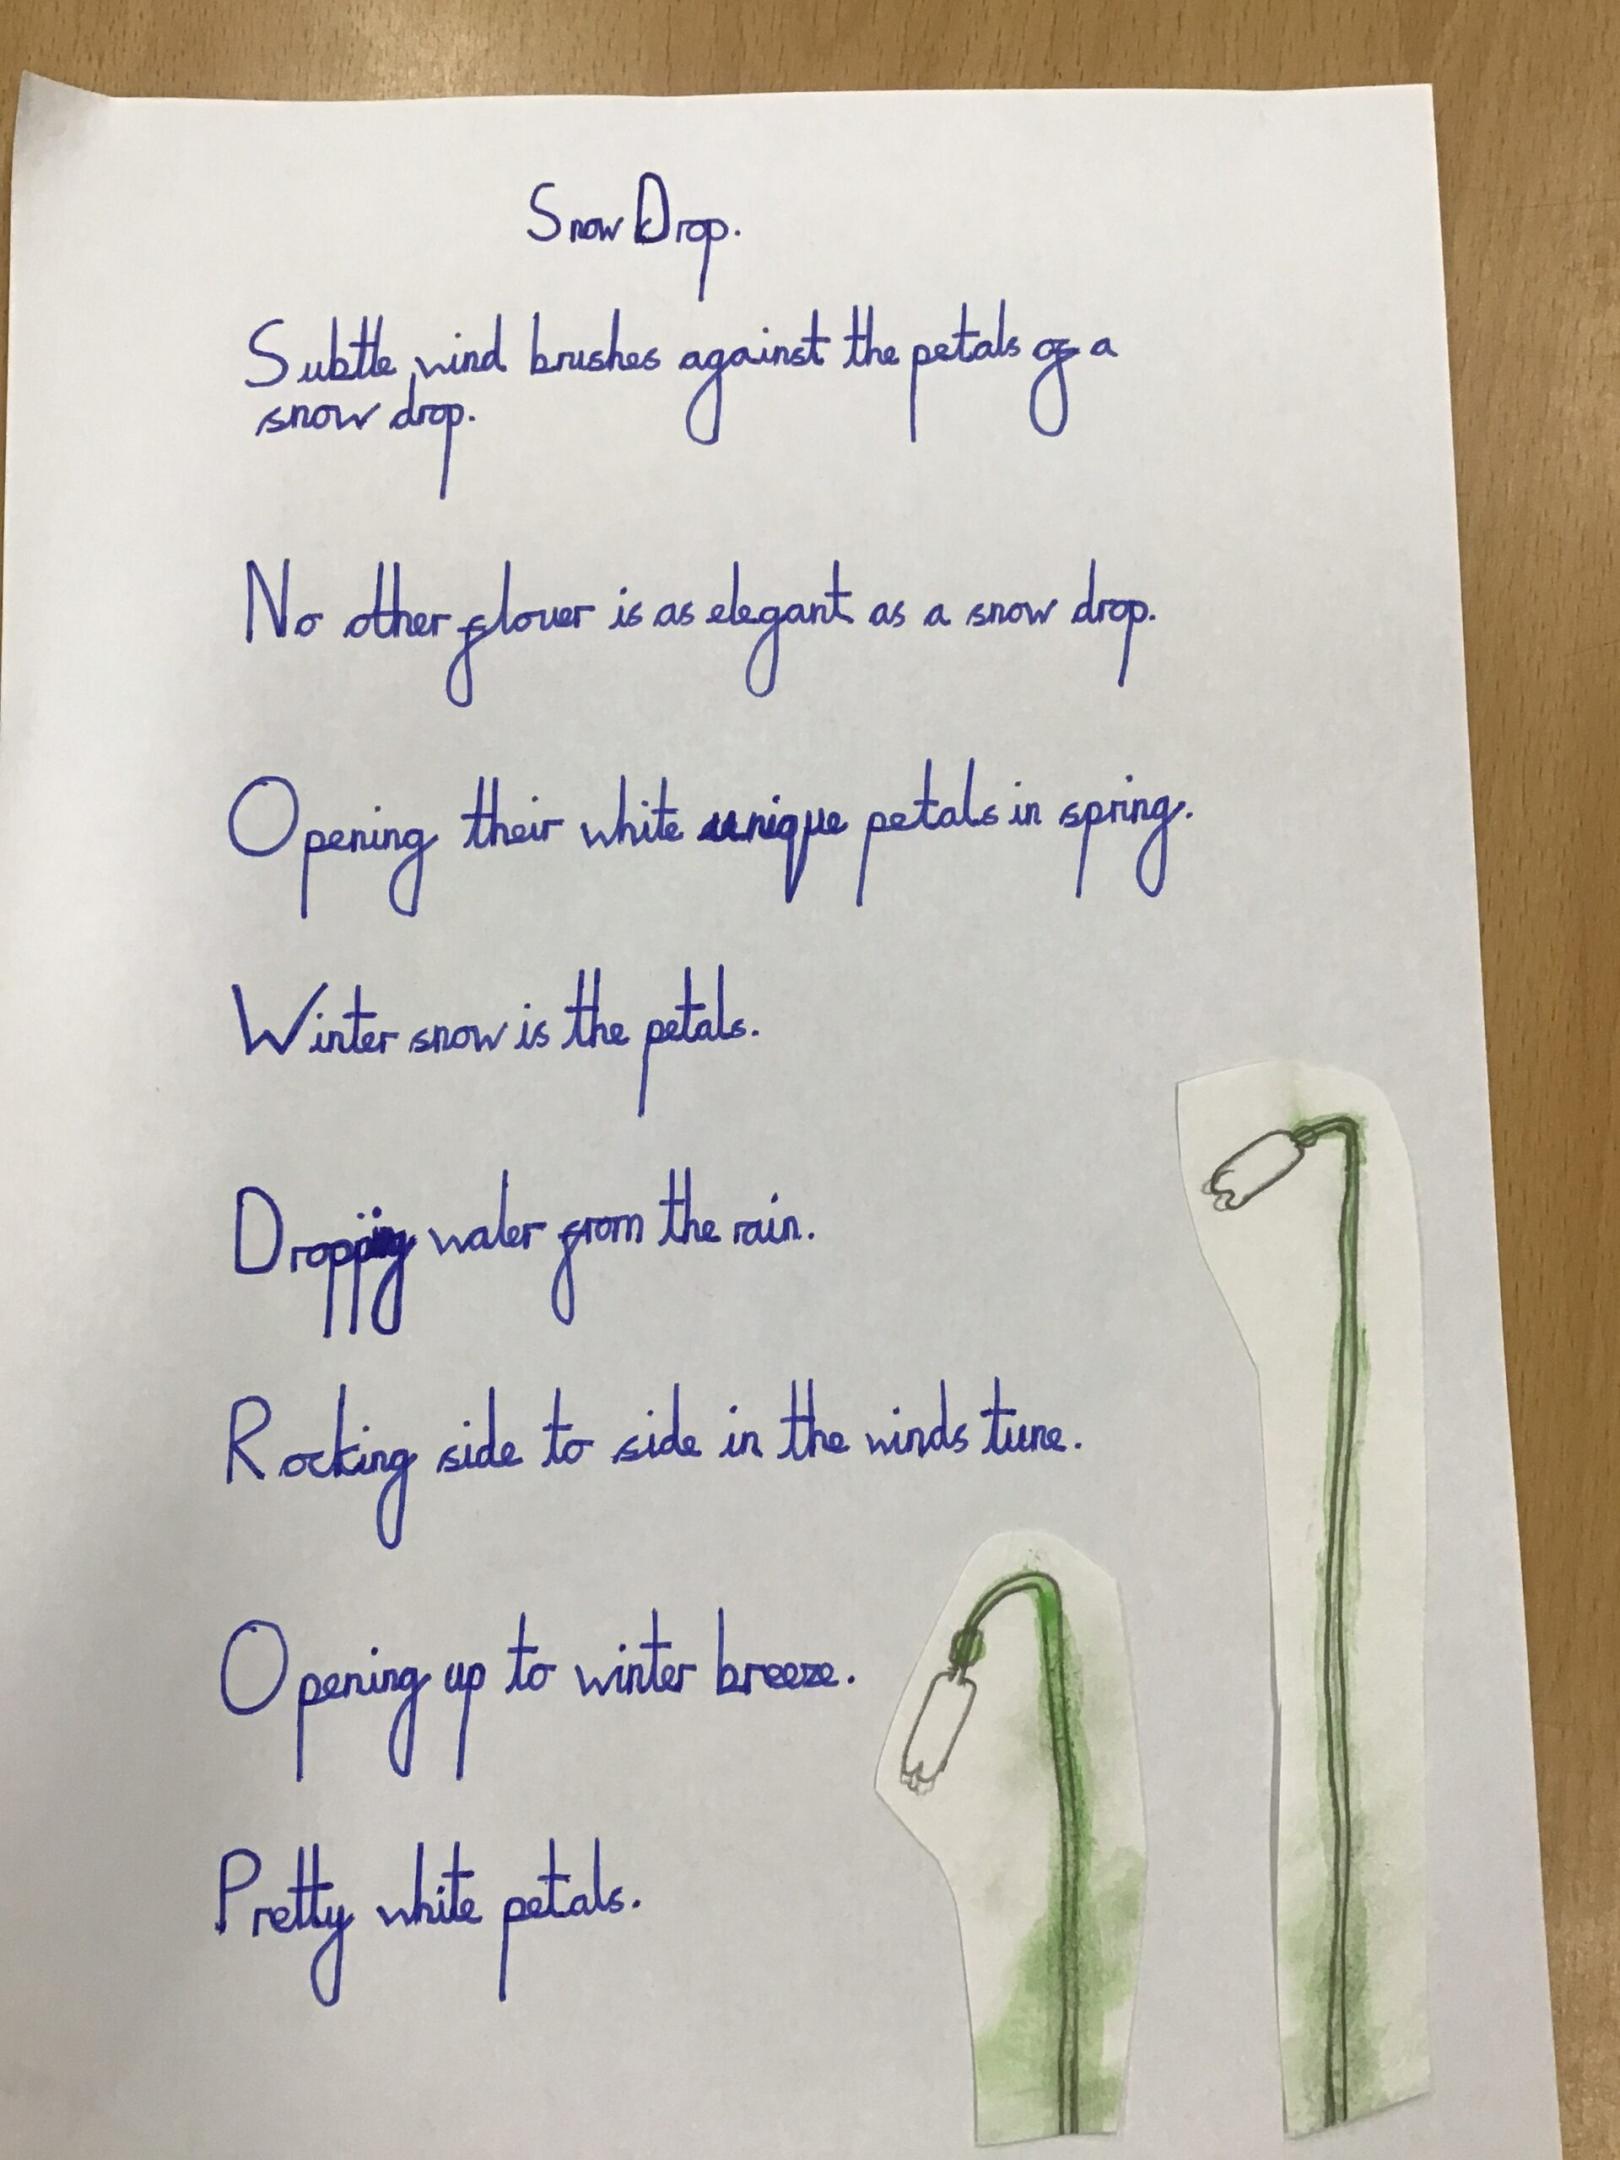 Snow Drop.
Subtle, wind brushes against the petals of a
snow drop.
No other flower is as elegant as a snow drop.
Opening their white unique petals in spring.
Winter snow is the petals.
Dropping water from the rain.
Rocking side to side in the winds tune.
Opening up to winter breeze.
Pretty white petals.